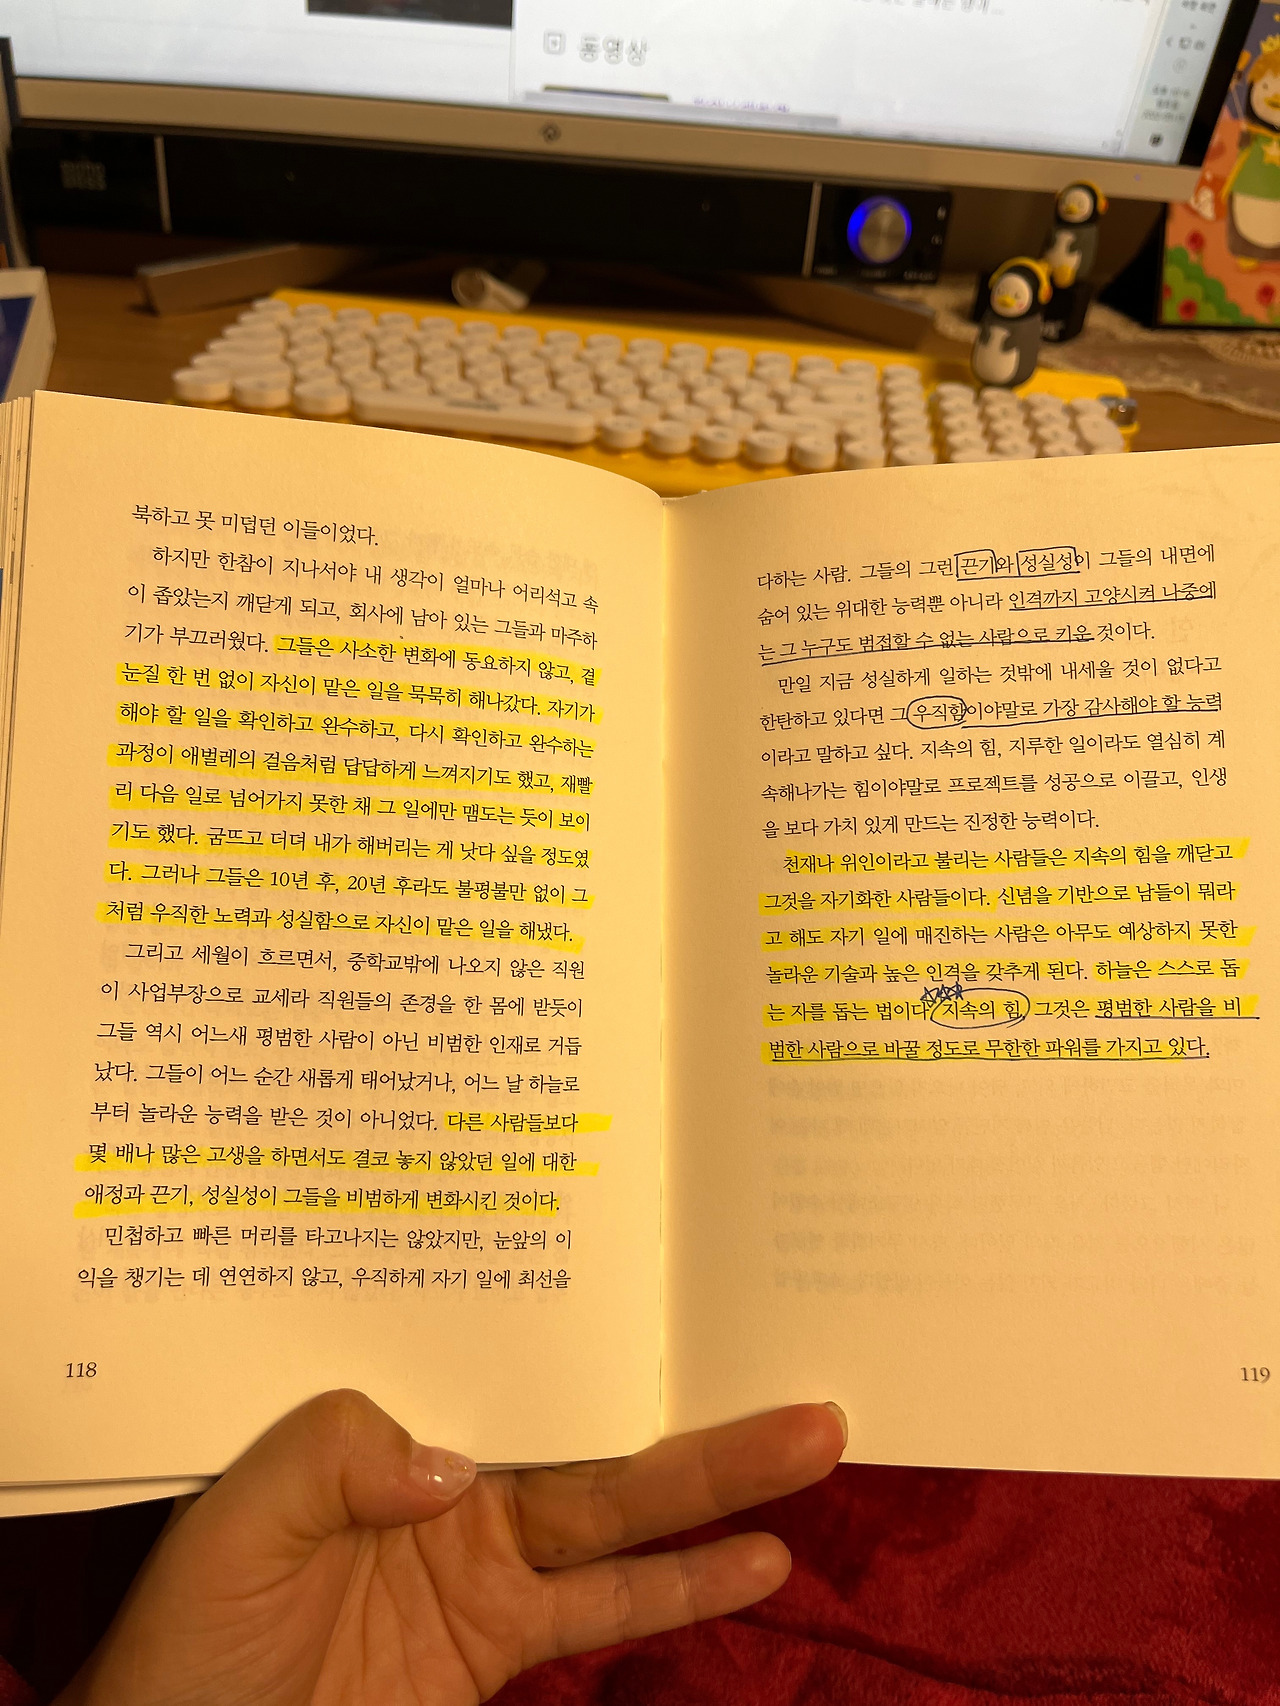 동영상
북하고 못 미덥던 이들이었다.
하지만 한참이 지나서야 내 생각이 얼마나 어리석고 속
이 좁았는지 깨닫게 되고, 회사에 남아 있는 그들과 마주하
기가 부끄러웠다. 그들은 사소한 변화에 동요하지 않고, 곁
눈질 한 번 없이 자신이 맡은 일을 묵묵히 해나갔다. 자기가
해야 할 일을 확인하고 완수하고, 다시 확인하고 완수하는
과정이 애벌레의 걸음처럼 답답하게 느껴지기도 했고, 재빨
리 다음 일로 넘어가지 못한 채 그 일에만 맴도는 듯이 보이
기도 했다. 굼뜨고 더뎌 내가 해버리는 게 낫다 싶을 정도였
다. 그러나 그들은 10년 후, 20년 후라도 불평불만 없이 그
처럼 우직한 노력과 성실함으로 자신이 맡은 일을 해냈다.
그리고 세월이 흐르면서, 중학교밖에 나오지 않은 직원
이 사업부장으로 교세라 직원들의 존경을 한 몸에 받듯이
그들 역시 어느새 평범한 사람이 아닌 비범한 인재로 거듭
났다. 그들이 어느 순간 새롭게 태어났거나, 어느 날 하늘로
부터 놀라운 능력을 받은 것이 아니었다. 다른 사람들보다
몇 배나 많은 고생을 하면서도 결코 놓지 않았던 일에 대한
애정과 끈기, 성실성이 그들을 비범하게 변화시킨 것이다.
민첩하고 빠른 머리를 타고나지는 않았지만, 눈앞의 이
익을 챙기는 데 연연하지 않고, 우직하게 자기 일에 최선을
118
다하는 사람. 그들의 그런 끈기와 성실성이 그들의 내면에
숨어 있는 위대한 능력뿐 아니라 인격까지 고양시켜 나중에
는 그 누구도 범접할 수 없는 사람으로 키운 것이다.
만일 지금 성실하게 일하는 것밖에 내세울 것이 없다고
한탄하고 있다면 그 우직함이야말로 가장 감사해야 할 능력
이라고 말하고 싶다. 지속의 힘, 지루한 일이라도 열심히 계
속해나가는 힘이야말로 프로젝트를 성공으로 이끌고, 인생
을 보다 가치 있게 만드는 진정한 능력이다.
천재나 위인이라고 불리는 사람들은 지속의 힘을 깨닫고
그것을 자기화한 사람들이다. 신념을 기반으로 남들이 뭐라
고 해도 자기 일에 매진하는 사람은 아무도 예상하지 못한
놀라운 기술과 높은 인격을 갖추게 된다. 하늘은 스스로 돕
는 자를 돕는 법이다. 지속의 힘, 그것은 평범한 사람을 비
범한 사람으로 바꿀 정도로 무한한 파워를 가지고 있다.
119